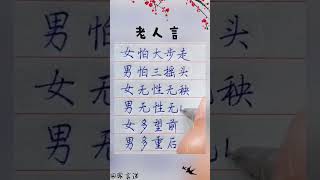 老人言
女怕大步走
男怕三摇头
女无性无秧
男无性无
女多望前
男多重后